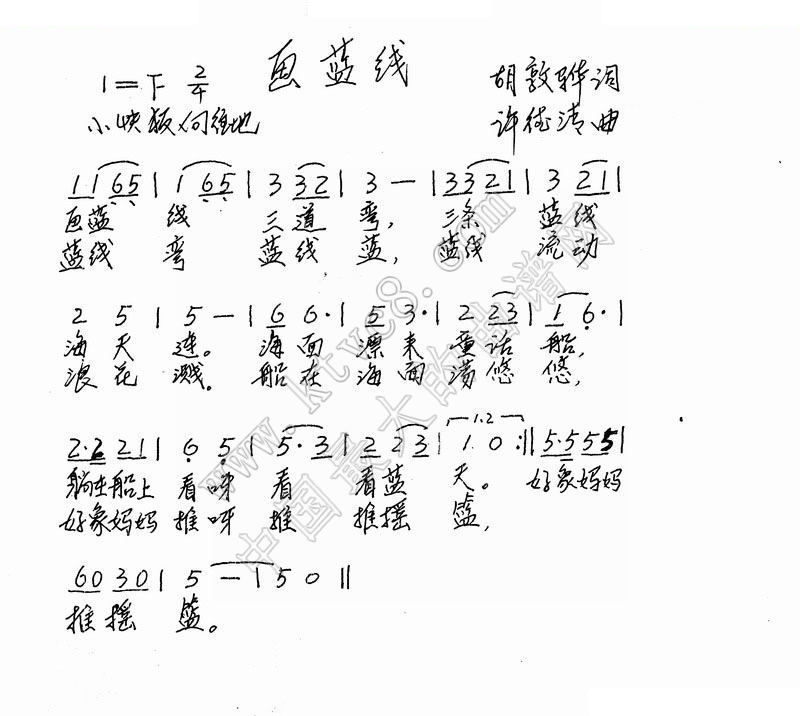 画蓝线
1=下 2/4
胡敦骅词
小快板 向往地
许德清曲
1 1 6 5 | 1 6 5 | 3 3 2 | 3 — | 3 3 2 1 | 3 2 1 |
画蓝 线 三道 弯, 三条 蓝线
蓝线 弯 蓝线 蓝, 蓝线 流动
2 5 | 5 — | 6 6· | 5 3· | 2 2 3 | 1 6· |
海 天 连。 海面 漂来 童话 船,
浪花 溅。 船在 海面 荡悠 悠,
2·2 2 1 | 6 5 | 5·3 | 2 2 3 | 1 0 :|| 5·5 5 5 |
1.2
躺在船上 看呀 看 看蓝 天。 好象妈妈
好象妈妈 推呀 推 推摇 篮,
6 0 3 0 | 5 — | 5 0 ||
推摇 篮。
www.ktvc8.com
中国最大的曲谱网